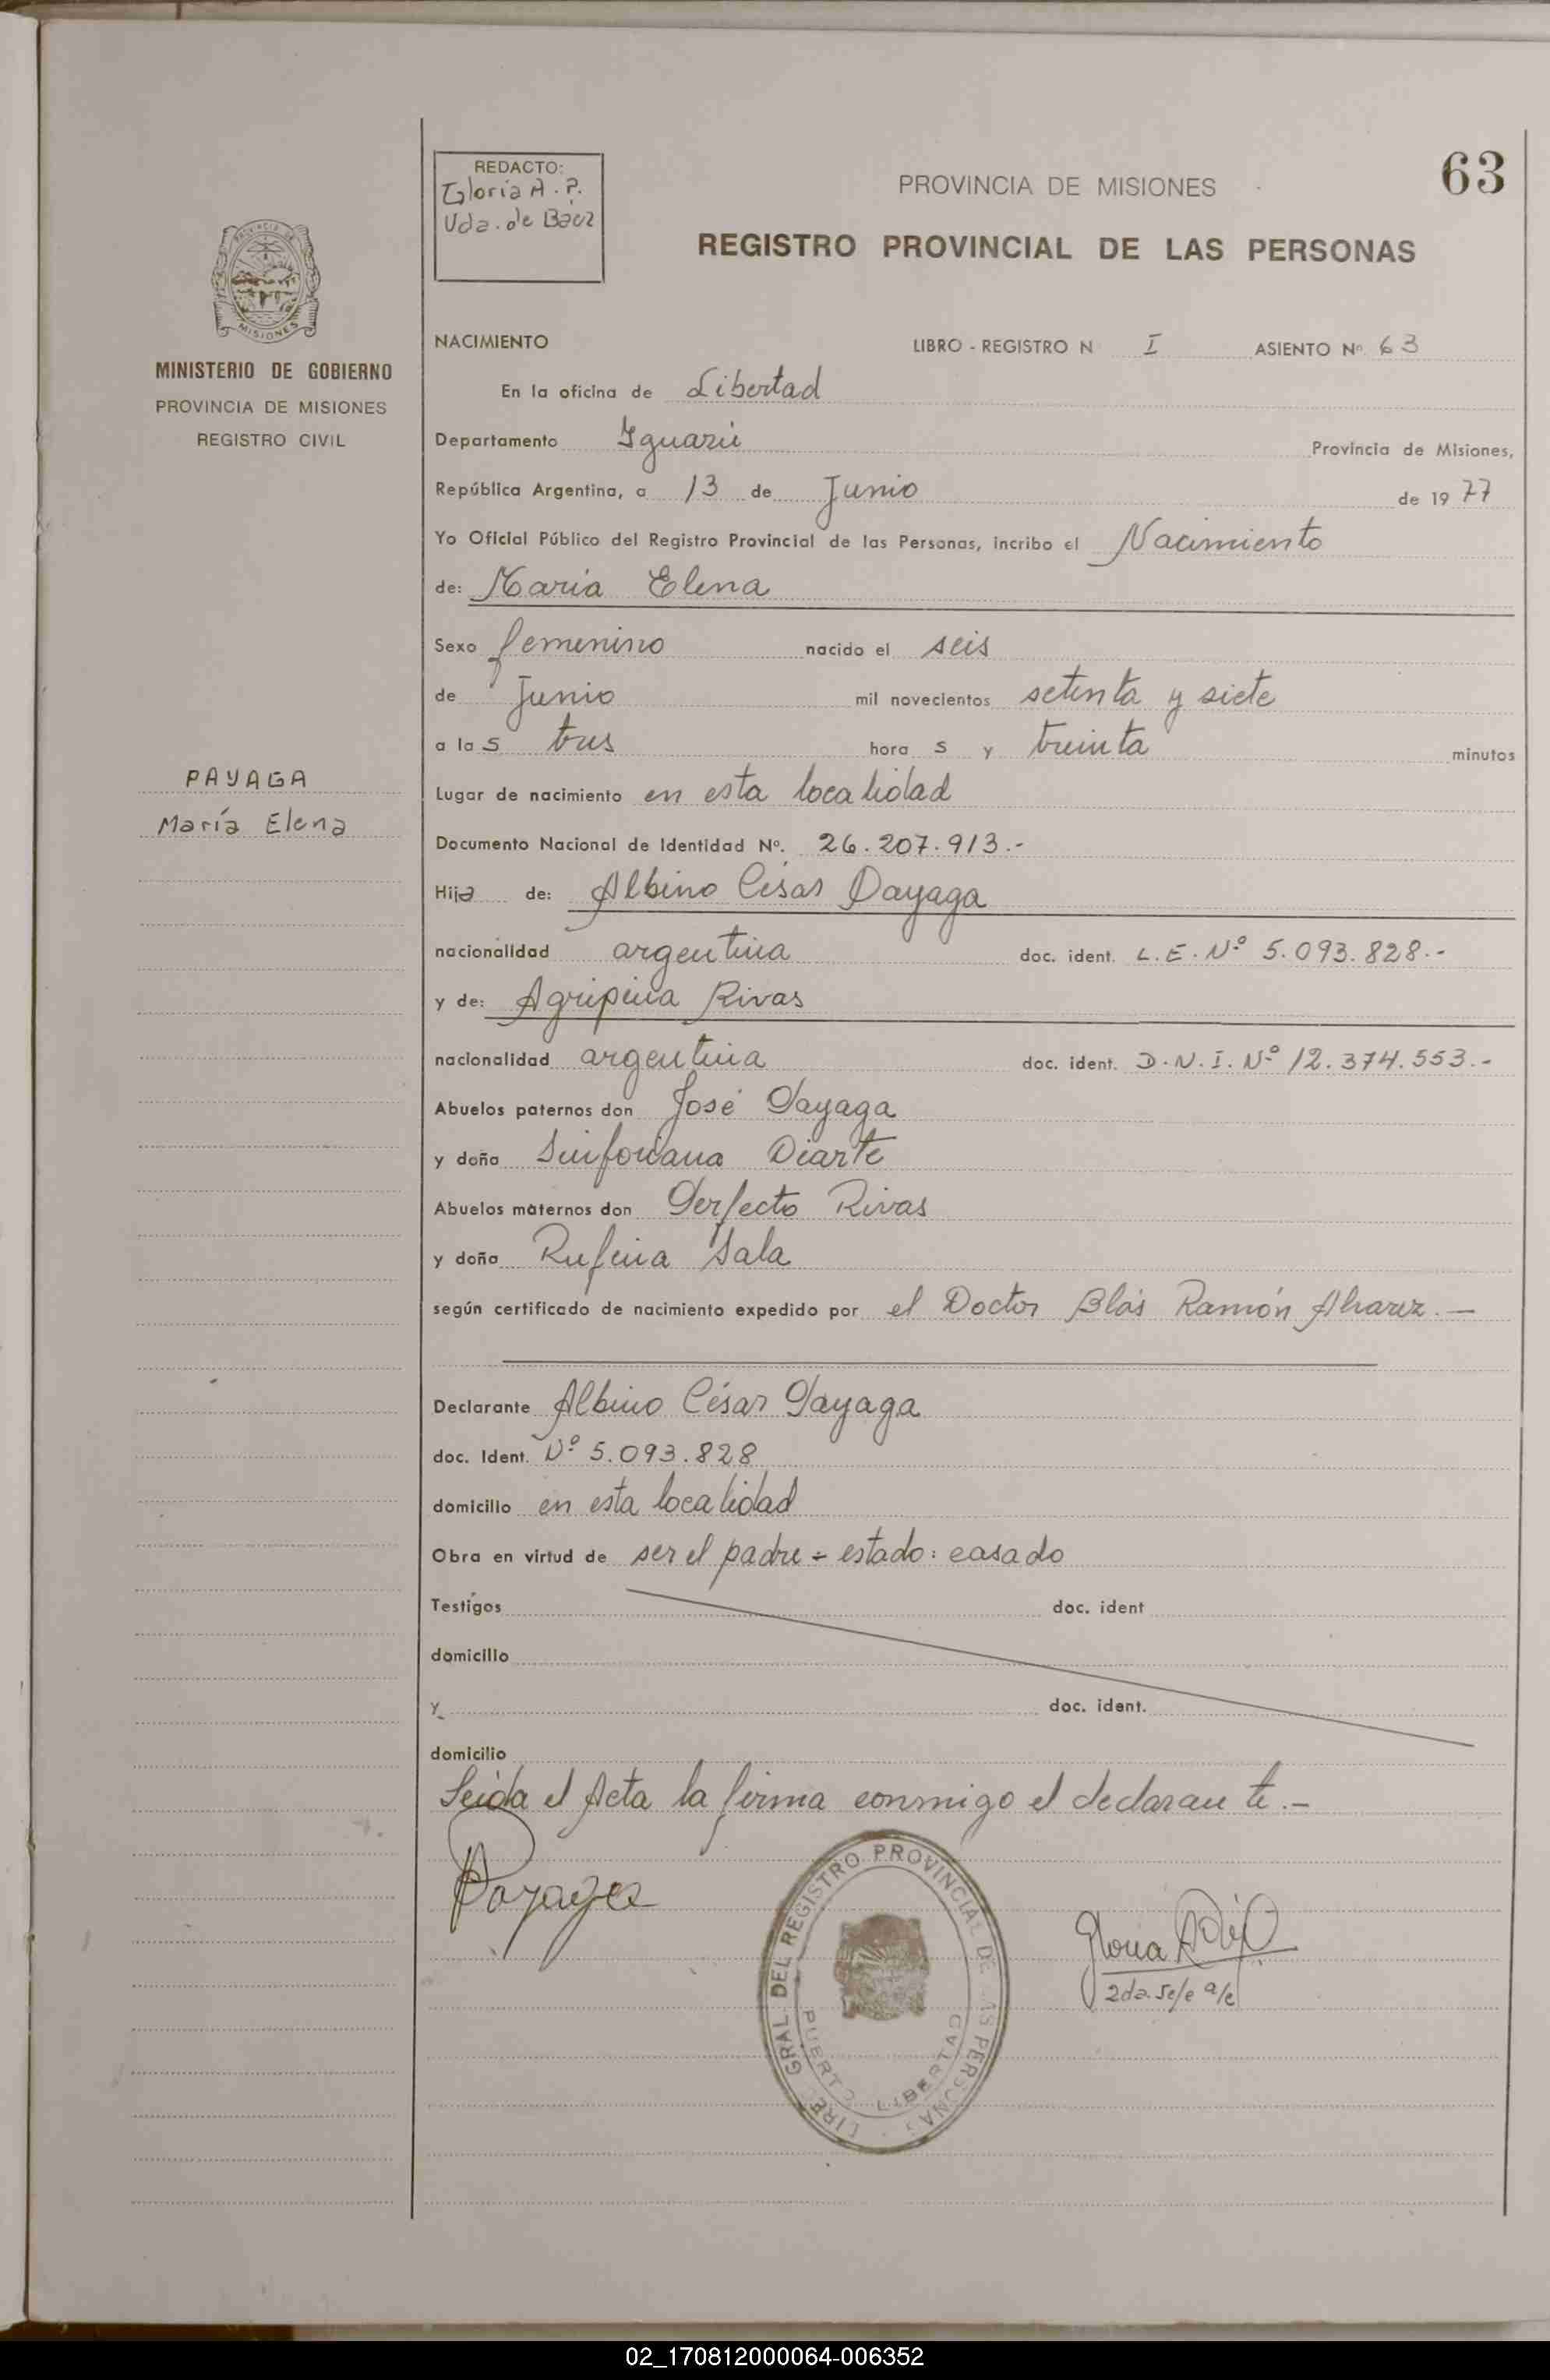 REDACTO:
Gloria A. P.
Vda. de Báez
PROVINCIA DE MISIONES
63
REGISTRO PROVINCIAL DE LAS PERSONAS
PROVINCIA DE
MISIONES
MINISTERIO DE GOBIERNO
PROVINCIA DE MISIONES
REGISTRO CIVIL
NACIMIENTO LIBRO - REGISTRO N I ASIENTO Nº 63
En la oficina de Libertad
Departamento Iguazú Provincia de Misiones,
República Argentina, a 13 de Junio de 1977
Yo Oficial Público del Registro Provincial de las Personas, incribo el Nacimiento
de: María Elena
Sexo femenino nacido el seis
de Junio mil novecientos setenta y siete
a las tres horas y treinta minutos
PAYAGA
María Elena
Lugar de nacimiento en esta localidad
Documento Nacional de Identidad Nº. 26.207.913.-
Hija de: Albino César Payaga
nacionalidad argentina doc. ident. L.E. Nº 5.093.828.-
y de: Agripina Rivas
nacionalidad argentina doc. ident. D.N.I. Nº 12.374.553.-
Abuelos paternos don José Payaga
y doña Sinforiana Diarte
Abuelos maternos don Perfecto Rivas
y doña Rufina Sala
según certificado de nacimiento expedido por el Doctor Blás Ramón Alvarez.-
Declarante Albino César Payaga
doc. Ident. Nº 5.093.828
domicilio en esta localidad
Obra en virtud de ser el padre - estado: casado
Testigos doc. ident
domicilio
y doc. ident.
domicilio
Leída el Acta la firma conmigo el declarante.-
Payaga
GRAL DEL REGISTRO PROVINCIAL DE LAS PERSONAS
PUERTO LIBERTAD
Gloria
2da. Jefe a/c
02_170812000064-006352